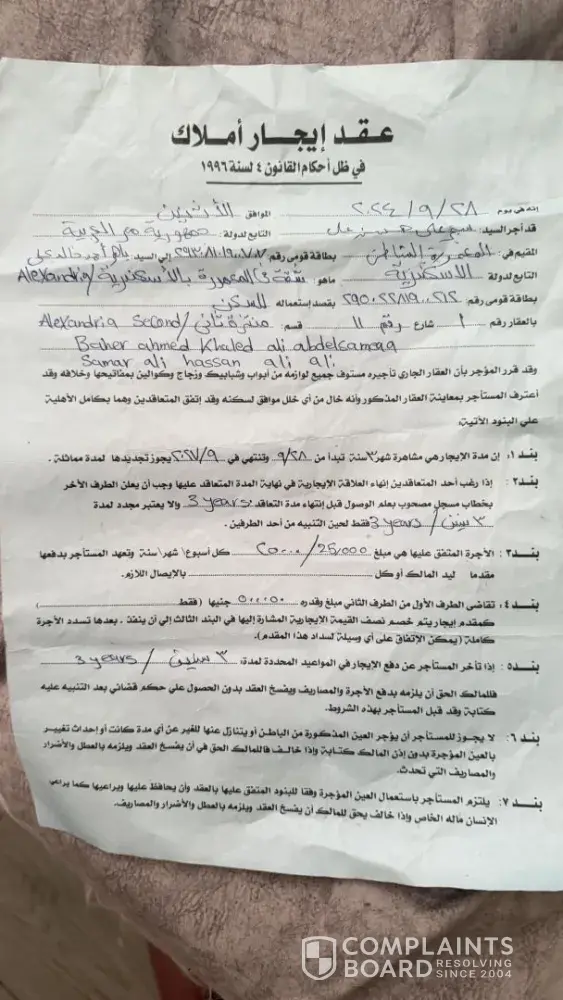 عقد إيجار أملاك
في ظل أحكام القانون ٤ لسنة ١٩٩٦
إنه في يوم ٢٠٢٤/٩/٢٨ الموافق الأثنين
قد أجر السيد: على حسن على التابع لدولة: جمهورية مصر العربية
المقيم في: المعمورة الشاطئ بطاقة قومى رقم إلى السيد باهر أحمد خالد على
التابع لدولة الاسكندرية ماهو: شقة فى المعمورة بالأسكندرية / Alexandria
بطاقة قومى رقم: ٢٩٠٠٢٢٨١٩٠٠٢١٢ بقصد إستعماله للسكن
بالعقار رقم ١ شارع رقم ١١ قسم: منتزة تانى / Alexandria Second
Baher ahmed Khaled ali abdelsamaa
Samar ali hassan ali ali
وقد قرر المؤجر بأن العقار الجارى تأجيره مستوف جميع لوازمه من أبواب وشبابيك وزجاج وكوالين بمفاتيحها وخلافه وقد
أعترف المستأجر بمعاينة العقار المذكور وأنه خال من أي خلل موافق لسكنه وقد إتفق المتعاقدين وهما بكامل الأهلية
علي البنود الآتية:
بند ١: إن مدة الإيجار هي مشاهرة شهر ٣ سنة تبدأ من ٩/٢٨ وتنتهي في ٢٠٢٧/٩ يجوز تجديدها لمدة مماثلة.
بند ٢: إذا رغب أحد المتعاقدين إنهاء العلاقة الإيجارية في نهاية المدة المتعاقد عليها وجب أن يعلن الطرف الأخر
بخطاب مسجل مصحوب بعلم الوصول قبل إنتهاء مدة التعاقد: 3 years ولا يعتبر مجدد لمدة
٣ سنين / 3 years فقط لحين التنبيه من أحد الطرفين.
بند ٣: الأجرة المتفق عليها هي مبلغ 25,000 / كل أسبوع\ شهر\ سنة وتعهد المستأجر بدفعها
مقدما ليد المالك أو كل بالإيصال اللازم.
بند ٤: تقاضى الطرف الأول من الطرف الثاني مبلغ وقدره جنيها (فقط )
كمقدم إيجار يتم خصم نصف القيمة الإيجارية المشارة إليها في البند الثالث إلي أن ينفذ. بعدها تسدد الأجرة
كاملة (يمكن الإتفاق على أي وسيلة لسداد هذا المقدم).
بند ٥: إذا تأخر المستأجر عن دفع الإيجار في المواعيد المحددة لمدة: ٣ سنين / 3 years
فللمالك الحق أن يلزمه بدفع الأجرة والمصاريف ويفسخ العقد بدون الحصول علي حكم قضائي بعد التنبيه عليه
كتابة وقد قبل المستأجر بهذه الشروط.
بند ٦: لا يجوز للمستأجر أن يؤجر العين المذكورة من الباطن أو يتنازل عنها للغير عن أي مدة كانت أو إحداث تغيير
بالعين المؤجرة بدون إذن المالك كتابة وإذا خالف فللمالك الحق في أن يفسخ العقد ويلزمه بالعطل والأضرار
والمصاريف التي تحدث.
بند ٧: يلتزم المستأجر باستعمال العين المؤجرة وفقا للبنود المتفق عليها بالعقد وأن يحافظ عليها ويراعيها كما يراعي
الإنسان ماله الخاص وإذا خالف يحق للمالك أن يفسخ العقد ويلزمه بالعطل والأضرار والمصاريف.
COMPLAINTS
BOARD RESOLVING
SINCE 2004